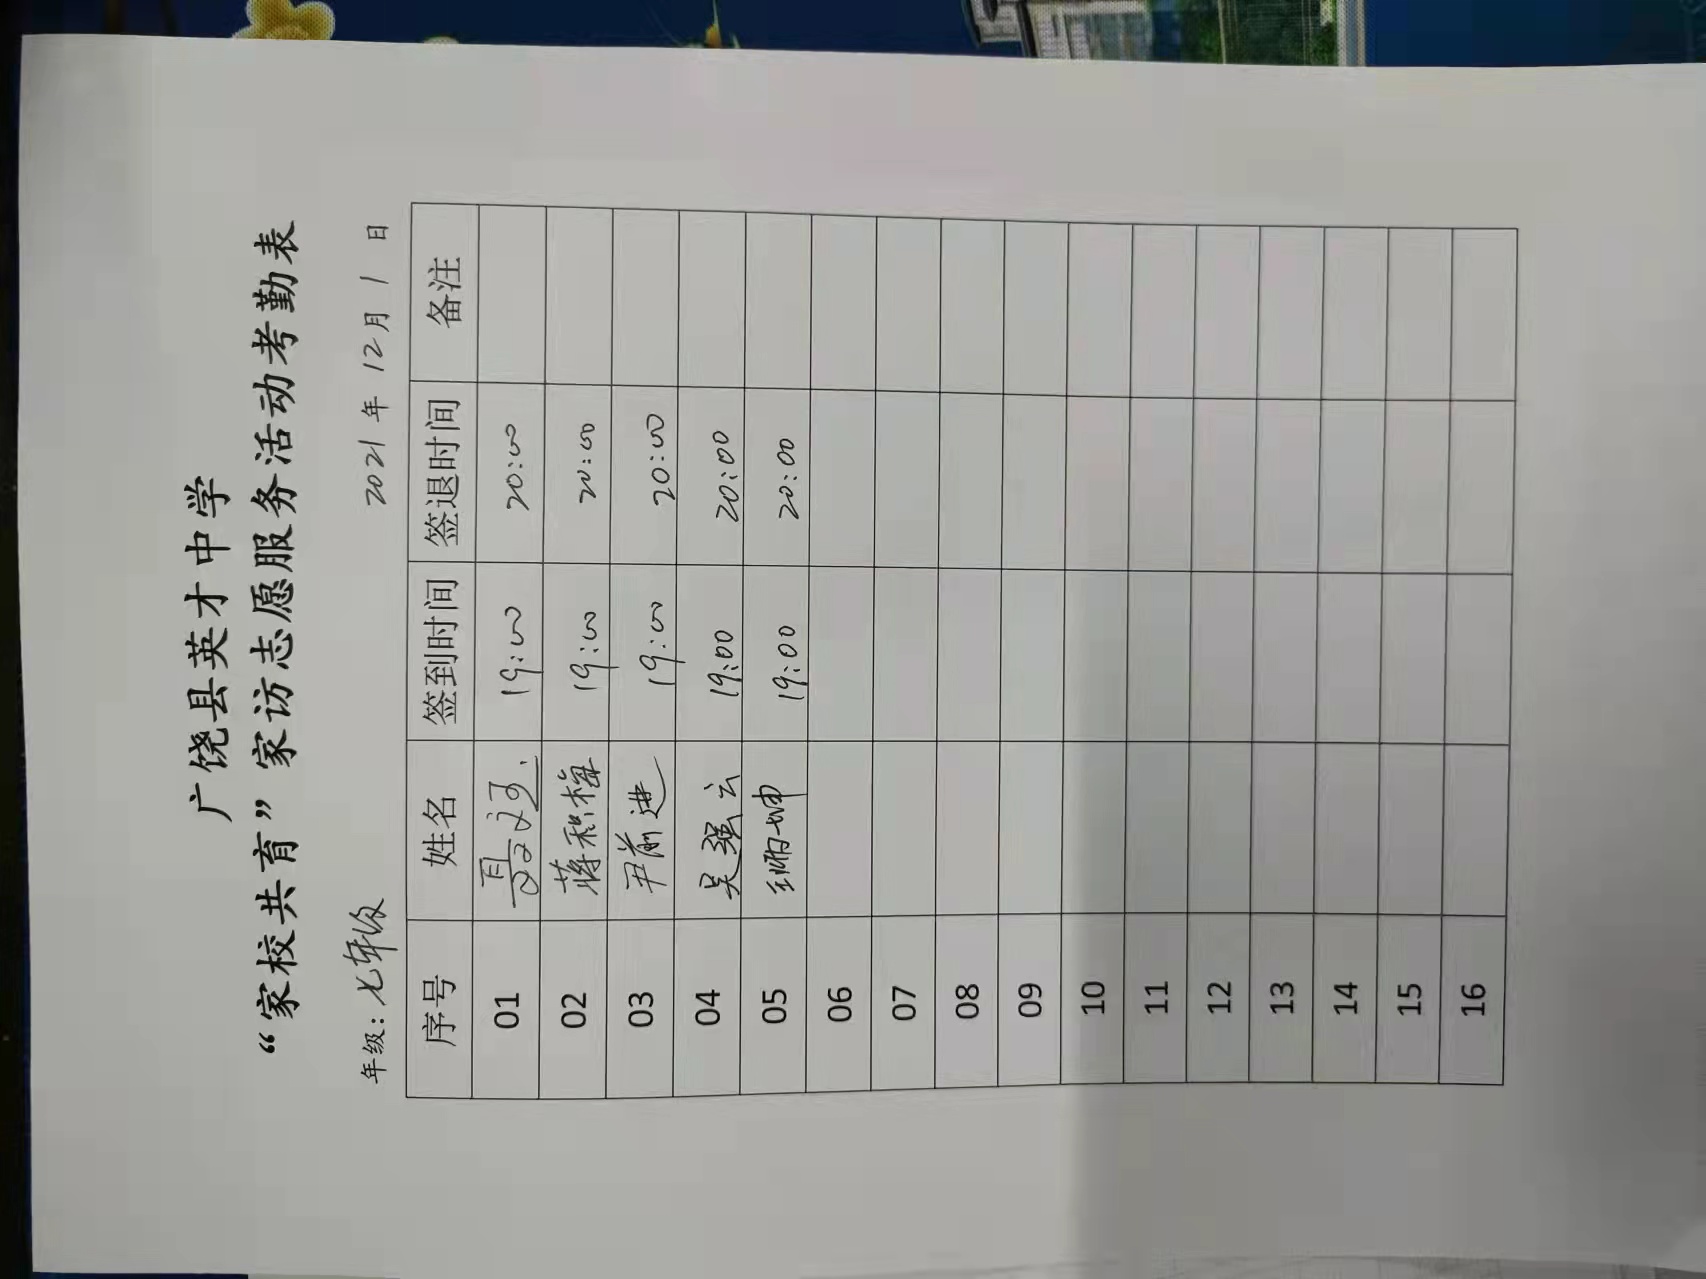 广饶县英才中学
“家校共育”家访志愿服务活动考勤表
年级：七年级 2021年12月1日
序号 姓名 签到时间 签退时间 备注
01 19:00 20:00
02 蒋积梅 19:00 20:00
03 尹前进 19:00 20:00
04 吴强云 19:00 20:00
05 19:00 20:00
06
07
08
09
10
11
12
13
14
15
16